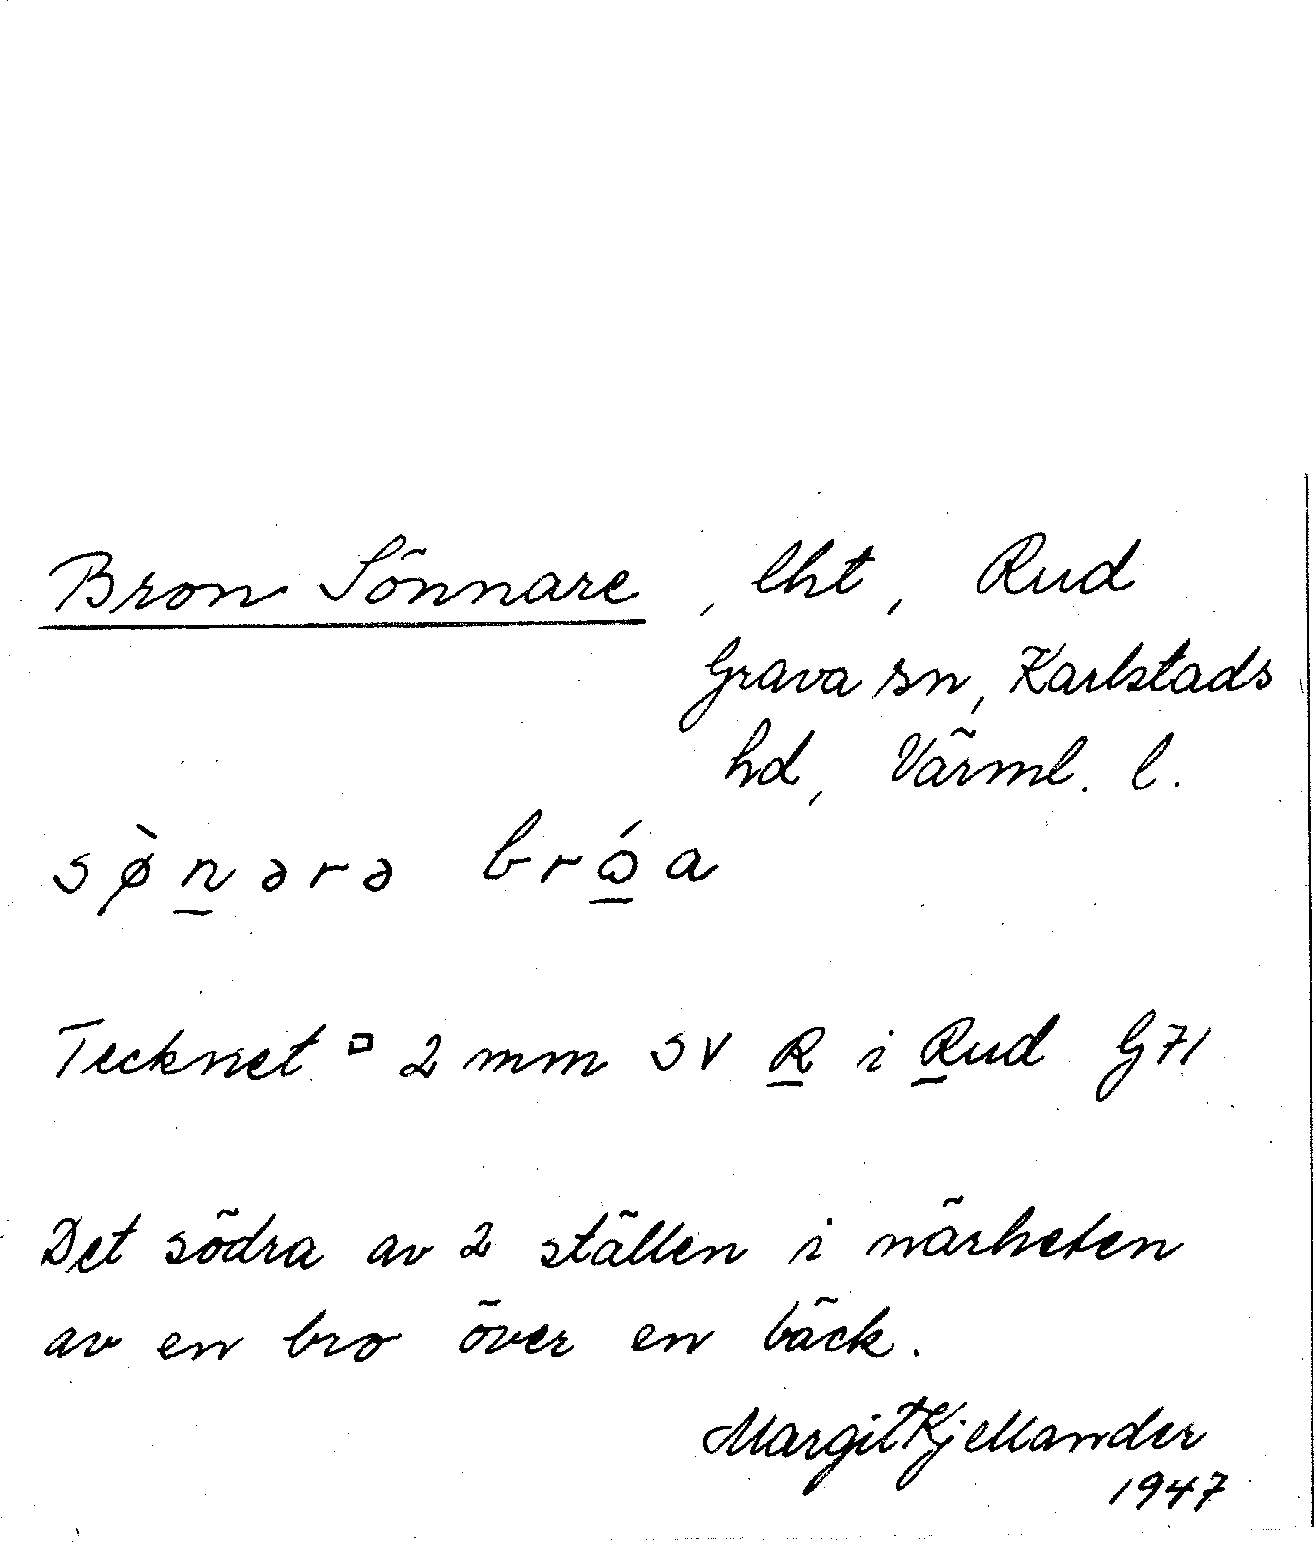 Bron Sönnare, lht, Rud
Grava sn, Karlstads
hd, Värml. l.
sø̀n̲ərə brɷ̲́a
Tecknet ▫ 2 mm SV R̲ i R̲ud G71
Det södra av 2 ställen i närheten
av en bro över en bäck.
Margit Kjellander
1947